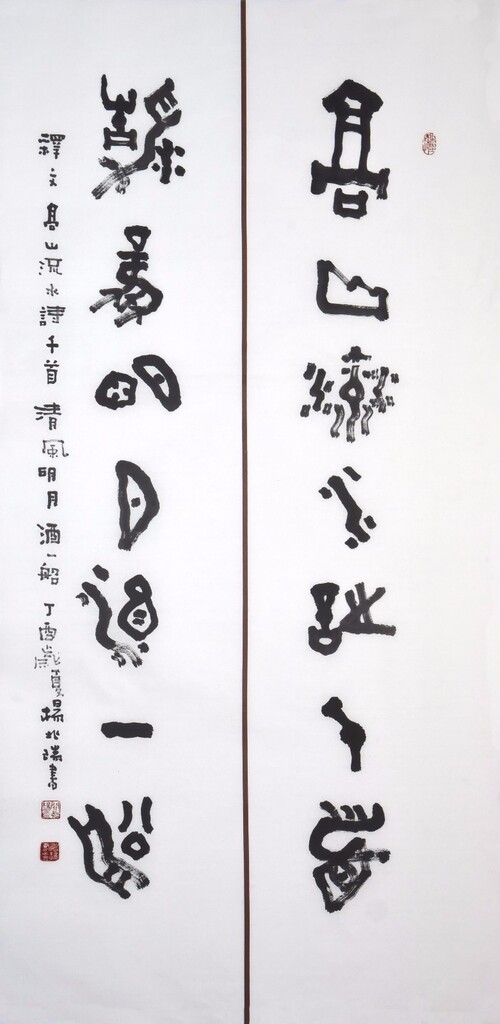 高山流水詩千首
清風明月酒一船
釋文 高山流水詩千首 清風明月酒一船 丁酉歲夏楊兆瑞書